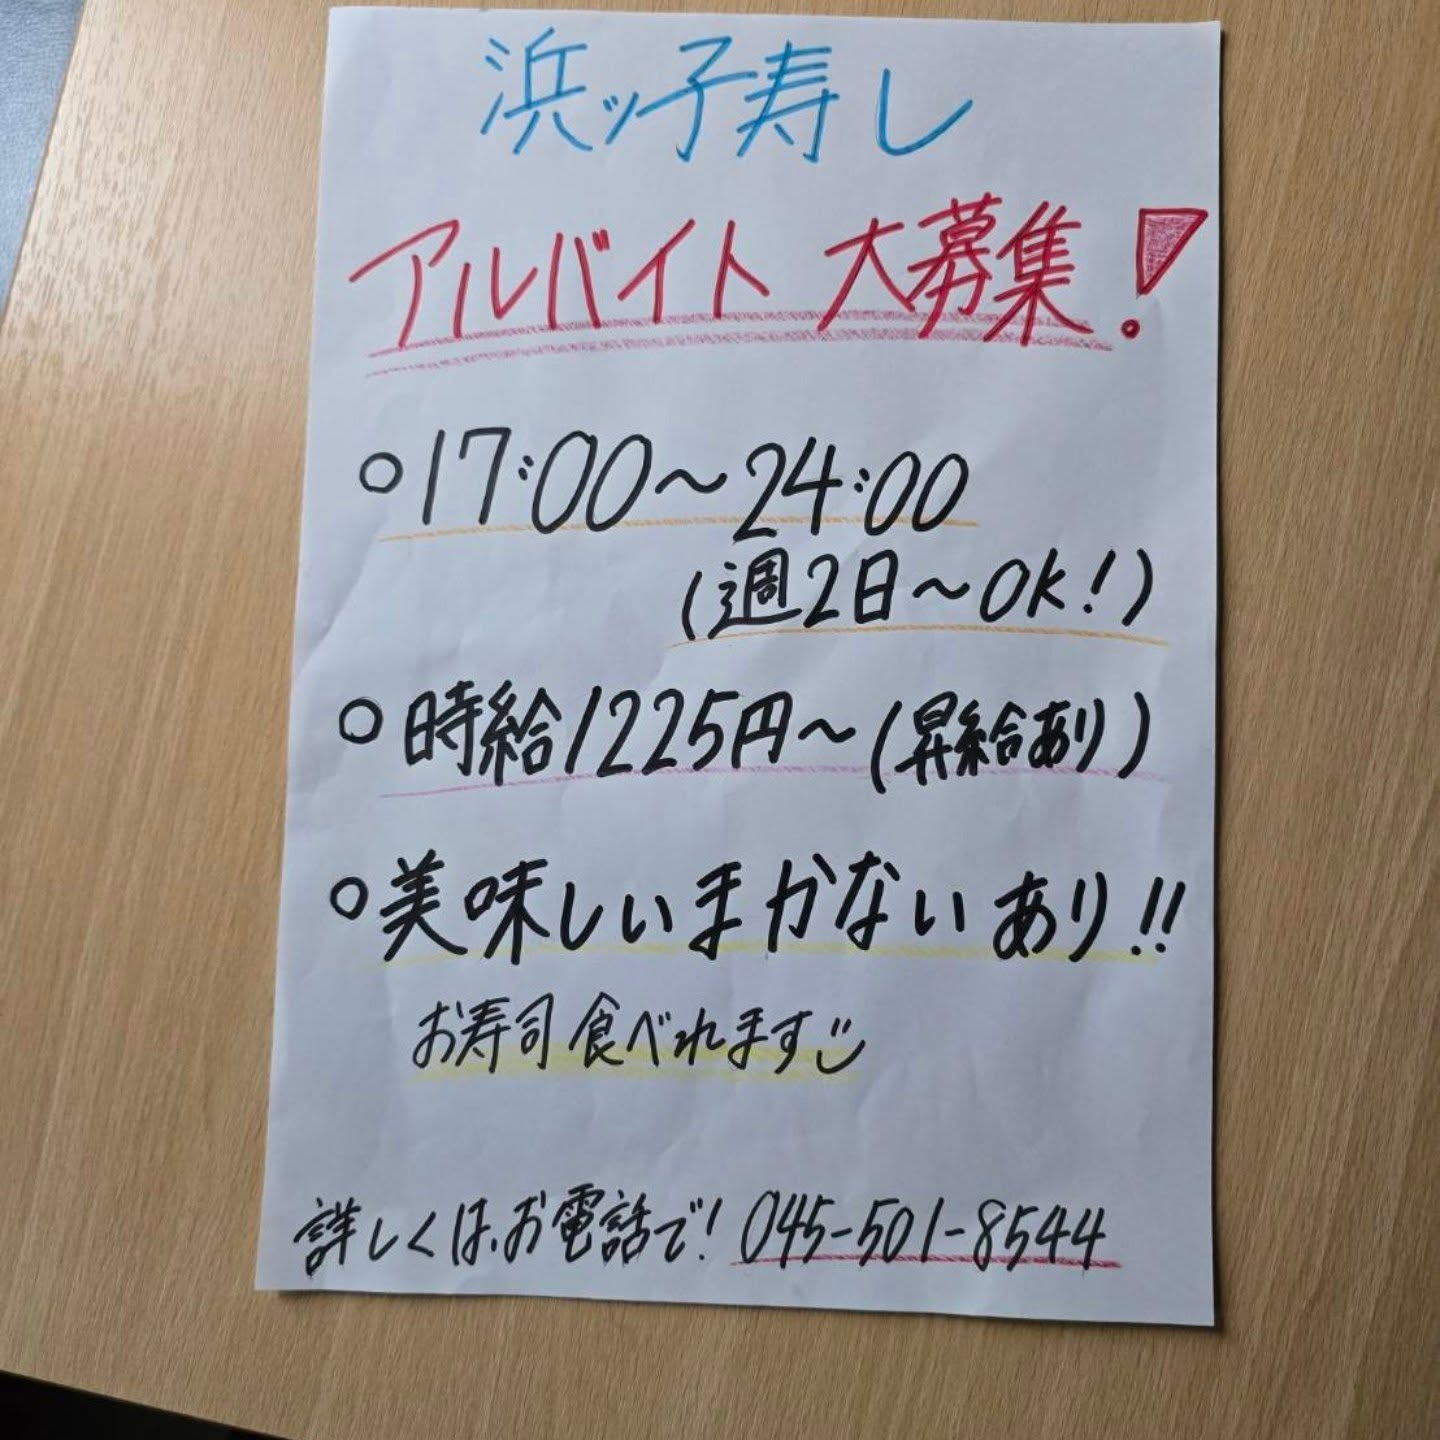 浜ッ子寿し
アルバイト 大募集!
○17:00～24:00
(週2日～OK!)
○時給1225円～(昇給あり)
○美味しいまかないあり!!
お寿司食べれます
詳しくは、お電話で! 045-501-8544